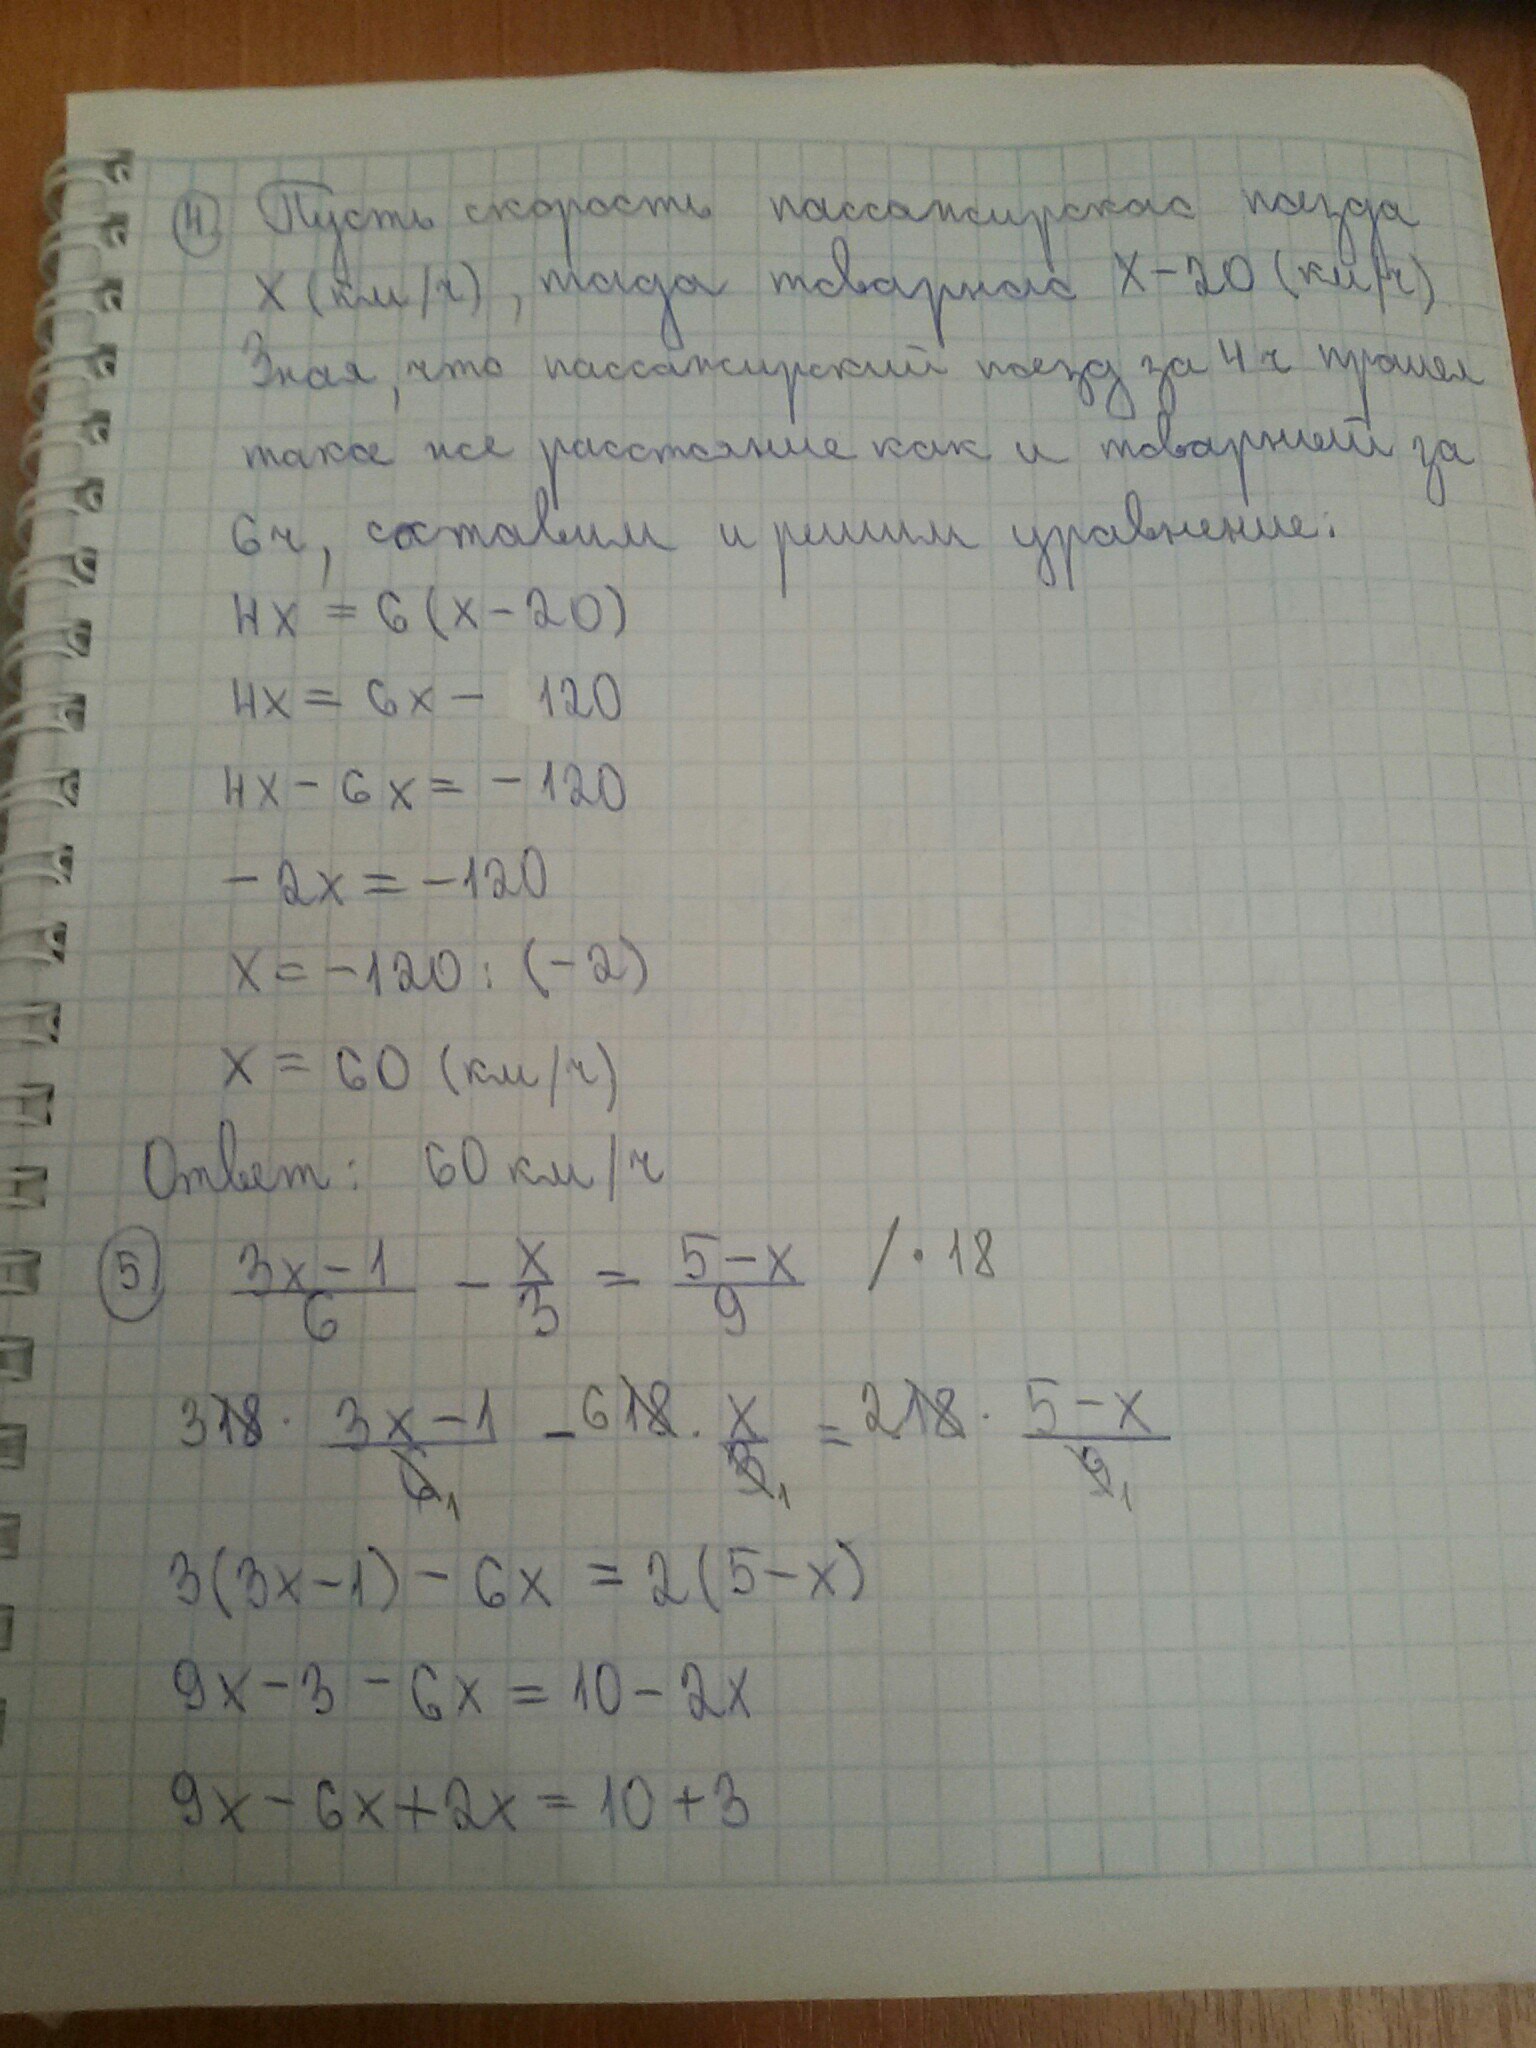 ④ Пусть скорость пассажирскас поезда
x (км/ч), тогда товарнас x-20 (км/ч)
Зная, что пассажирский поезд за 4 ч прошел
такое же расстояние как и товарный за
6ч, составим и решим уравнение:
4x = 6(x-20)
4x = 6x - 120
4x - 6x = -120
-2x = -120
x = -120 : (-2)
x = 60 (км/ч)
Ответ: 60 км/ч
⑤ (3x-1)/6 - x/3 = (5-x)/9 / · 18
3 18 · (3x-1)/6 1 - 6 18 · x/3 1 = 2 18 · (5-x)/9 1
3(3x-1) - 6x = 2(5-x)
9x - 3 - 6x = 10 - 2x
9x - 6x + 2x = 10 + 3